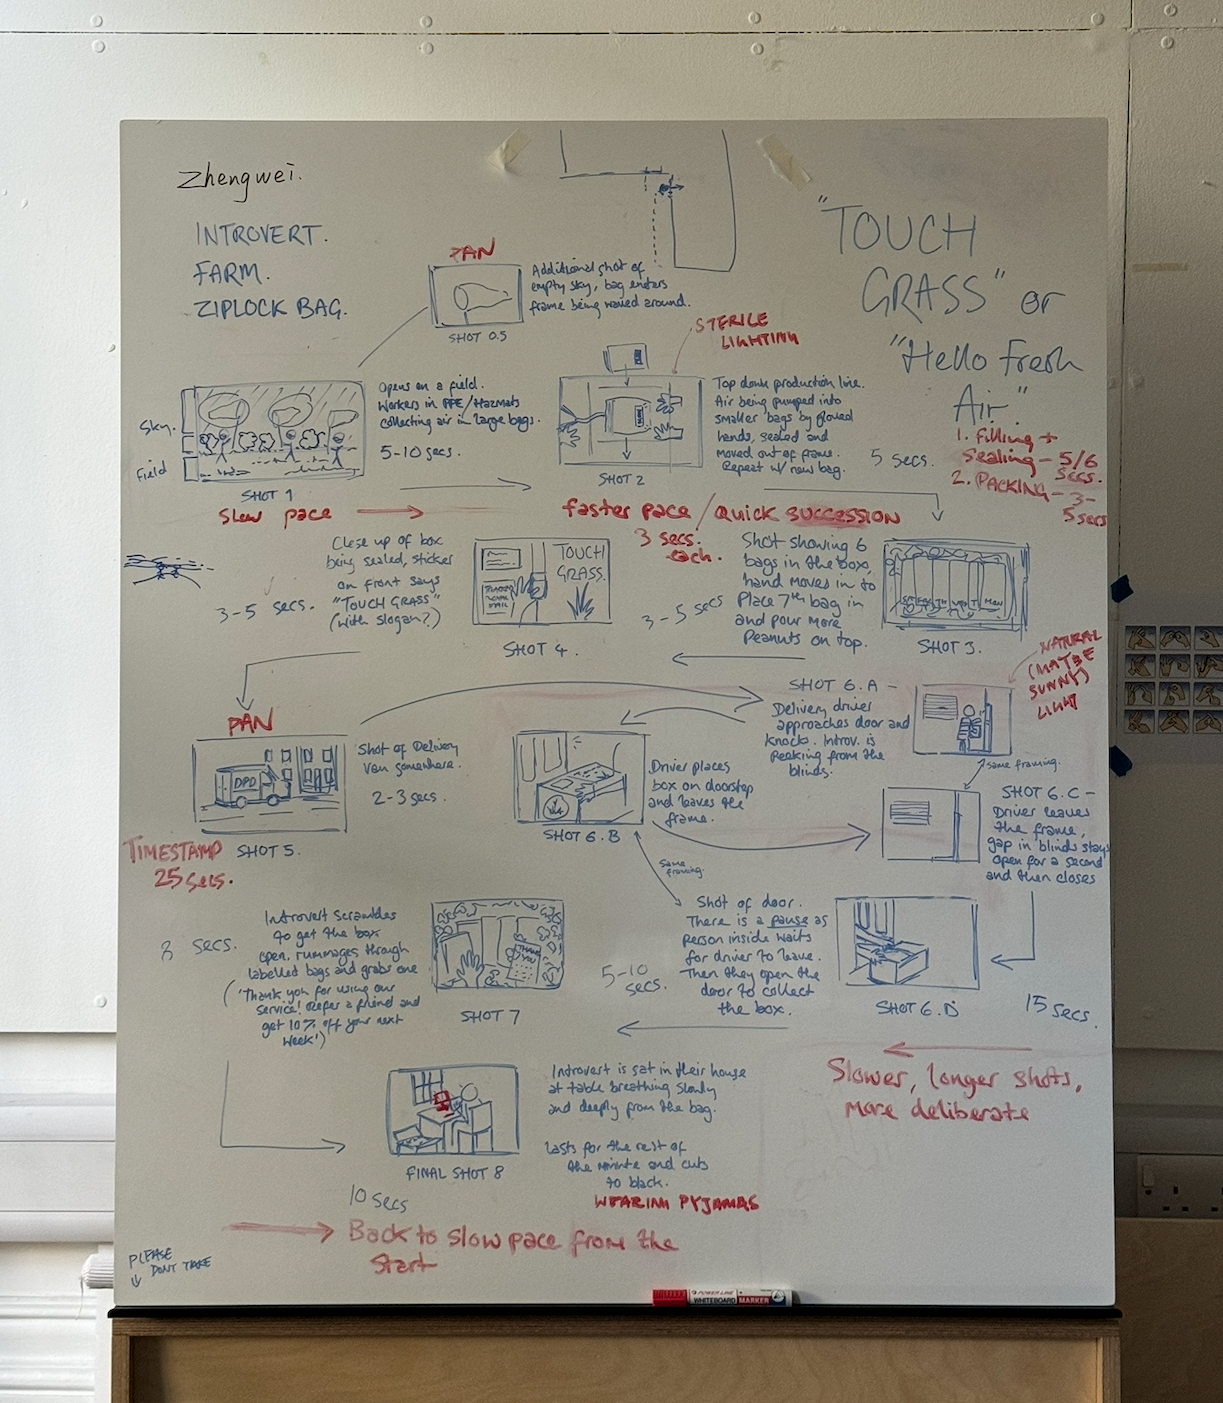 Zhengwei.
INTROVERT.
FARM.
ZIPLOCK BAG.
"TOUCH
GRASS" or
"Hello Fresh
Air"
1. Filling +
Sealing - 5/6
secs.
2. PACKING - 3-
5 secs
PAN
SHOT 0.5
Additional shot of
empty sky, bag enters
frame being waved around.
STERILE
LIGHTING
Sky.
Field
SHOT 1
Opens on a field.
Workers in PPE/Hazmats
collecting air in large bags.
5-10 secs.
Slow pace
SHOT 2
Top down production line.
Air being pumped into
smaller bags by gloved
hands, sealed and
moved out of frame.
Repeat w/ new bag.
5 secs.
faster pace / Quick SUCCESSION
3 secs.
each.
Shot showing 6
bags in the box,
hand moves in to
Place 7th bag in
and pour more
Peanuts on top.
3-5 secs
SHOT 3.
Close up of box
being sealed, sticker
on front says
"TOUCH GRASS"
(with slogan?)
3-5 secs.
TOUCH
GRASS.
SHOT 4.
NATURAL
(MAYBE
SUNNY)
LIGHT
PAN
DPD
Shot of Delivery
van somewhere.
2-3 secs.
TIMESTAMP
25 secs.
SHOT 5.
SHOT 6.A -
Delivery driver
approaches door and
knocks. Introv. is
Peeking from the
blinds.
same framing.
Driver places
box on doorstep
and leaves the
frame.
SHOT 6.B
SHOT 6.C -
Driver leaves
the frame,
gap in blinds stays
open for a second
and then closes
same
framing.
Shot of door.
There is a pause as
person inside waits
for driver to leave.
Then they open the
door to collect
the box.
5-10
secs.
SHOT 6.D
15 secs.
Introvert scrambles
to get the box
open, rummages through
labelled bags and grabs one
('Thank you for using our
service! Refer a friend and
get 10% off your next
week')
THANK
YOU
SHOT 7
Slower, longer shots,
more deliberate
Introvert is sat in their house
at table breathing slowly
and deeply from the bag.
Lasts for the rest of
the minute and cuts
to black.
WEARING PYJAMAS
FINAL SHOT 8
10 secs
Back to slow pace from the
Start
PLEASE
DONT TAKE
WHITEBOARD MARKER